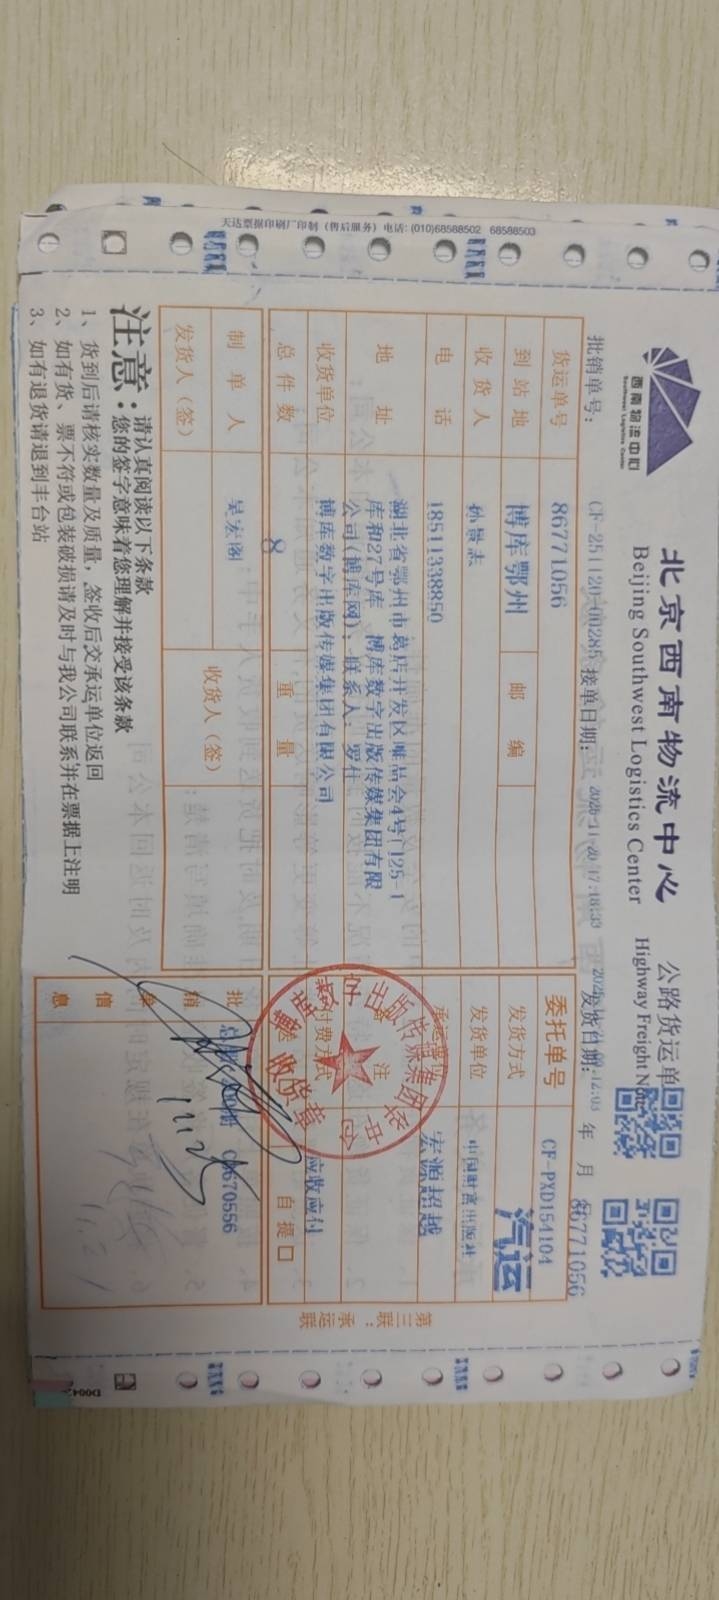 天达票据印刷厂印制（售后服务）电话:(010)68588502 68588503
西南物流中心
Southwest Logistics Center
北京西南物流中心 公路货运单
Beijing Southwest Logistics Center Highway Freight Note
86771056
批销单号: CF-251120-00285 接单日期: 2025-11-20 17:18:33 发货日期: 年 月
货运单号 86771056 委托单号 CF-PXD154104
到站地 博库鄂州 邮编 发货方式 汽运
收货人 孙景志 发货单位 中国财富出版社
电话 18511338850 承运单位 宏源超越
地址 湖北省鄂州市葛店开发区唯品会4号门125-1
库和27号库 博库数字出版传媒集团有限
公司(博库网), 联系人: 罗仕
注
收货单位 博库数字出版传媒集团有限公司 付费方式 应收应付
总件数 8 重量 自提 口
制单人 吴宏阁 收货人（签）
发货人（签）
批销单信息
C670556
注意: 请认真阅读以下条款
您的签字意味着您理解并接受该条款
1、货到后请核实数量及质量，签收后交承运单位返回
2、如有货、票不符或包装破损请及时与我公司联系并在票据上注明
3、如有退货请退到丰台站
第三联：承运联
收货章